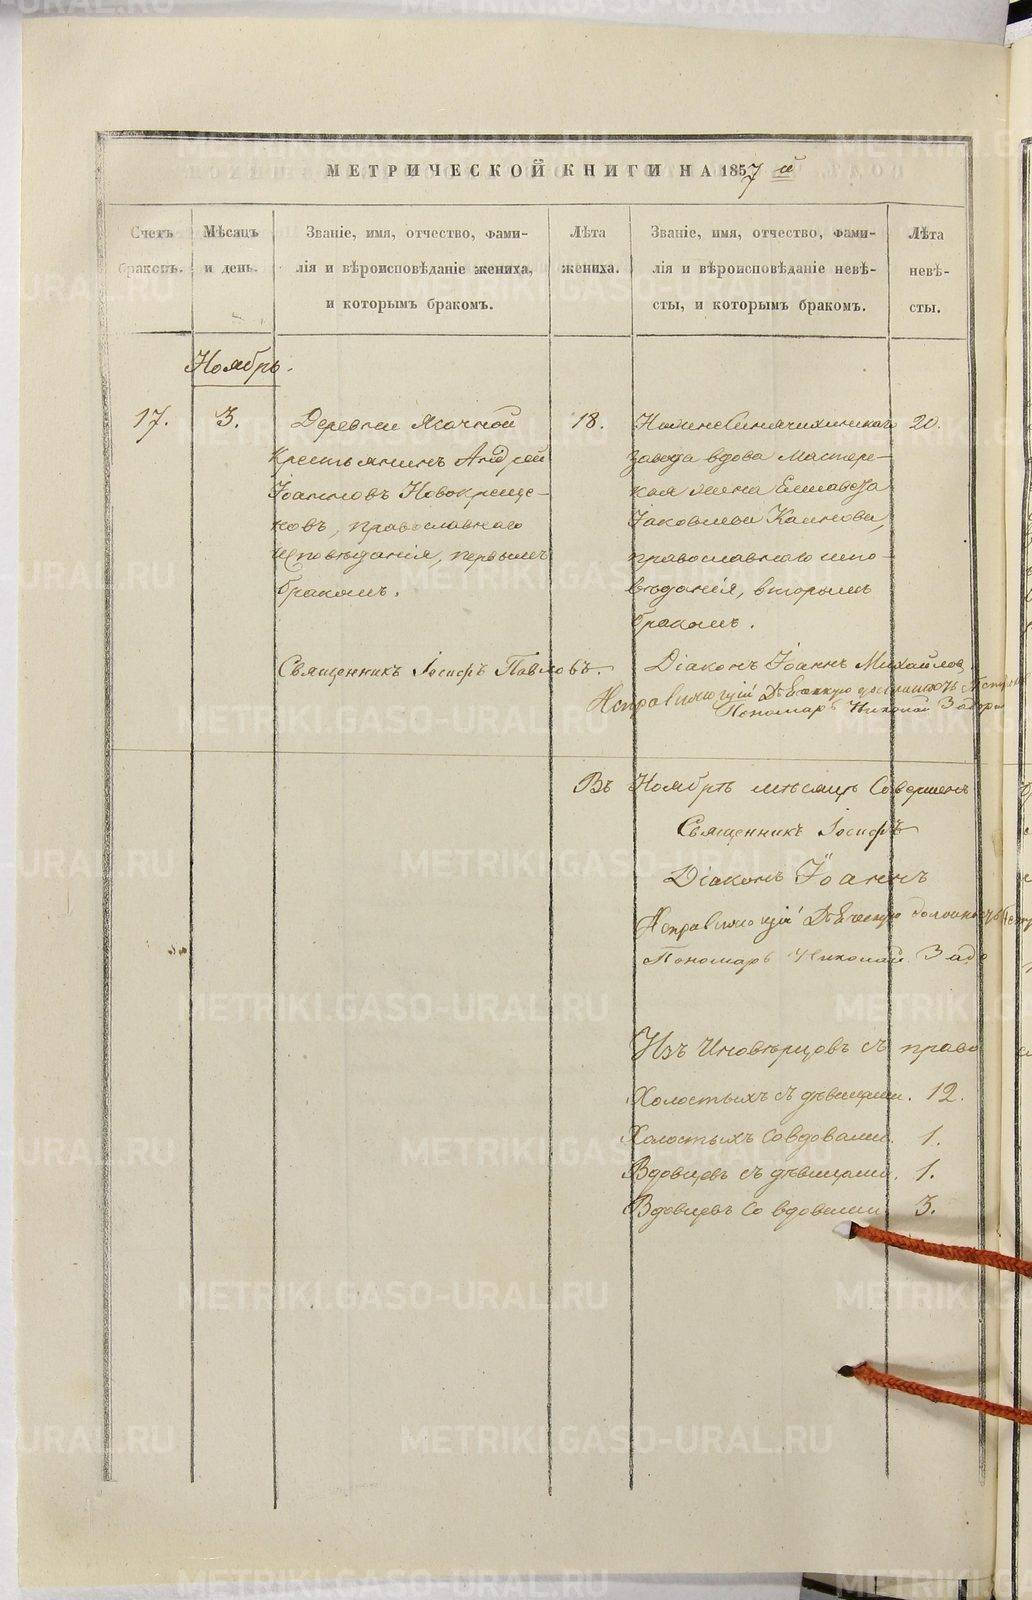 МЕТРИЧЕСКОЙ КНИГИ НА 1857 й
Счетъ браковъ.
Мѣсяцъ и день.
Званіе, имя, отчество, фами-
лія и вѣроисповѣданіе жениха,
и которымъ бракомъ.
Лѣта жениха.
Званіе, имя, отчество, фами-
лія и вѣроисповѣданіе невѣ-
сты, и которымъ бракомъ.
Лѣта невѣ-
сты.
Ноябрь.
17.
3.
Деревни Ясачной
крестьянинъ Андрей
Іоанновъ Новокреще-
новъ, православнаго
исповѣданія, первымъ
бракомъ.
18.
Нижнесинячихинскаго
завода вдова Мастер-
ская жена Елисавета
Іаковлева Каинова,
православнаго испо-
вѣданія, вторымъ
бракомъ.
20.
Священникъ Іосифъ Павловъ.
Діаконъ Іоаннъ Михайловъ
Исправляющій Дьяческую должность
Пономарь Николай
Въ Ноябрѣ мѣсяцѣ Совершен
Священникъ Іосифъ
Діаконъ Іоаннъ
Исправляющій Дьяческую должность
Пономарь Николай Задо
Изъ Иновѣрцовъ съ право
Холостыхъ съ дѣвицами. 12.
Холостыхъ со вдовами. 1.
Вдовцевъ съ дѣвицами. 1.
Вдовцевъ со вдовами 3.
METRIKI.GASO-URAL.RU